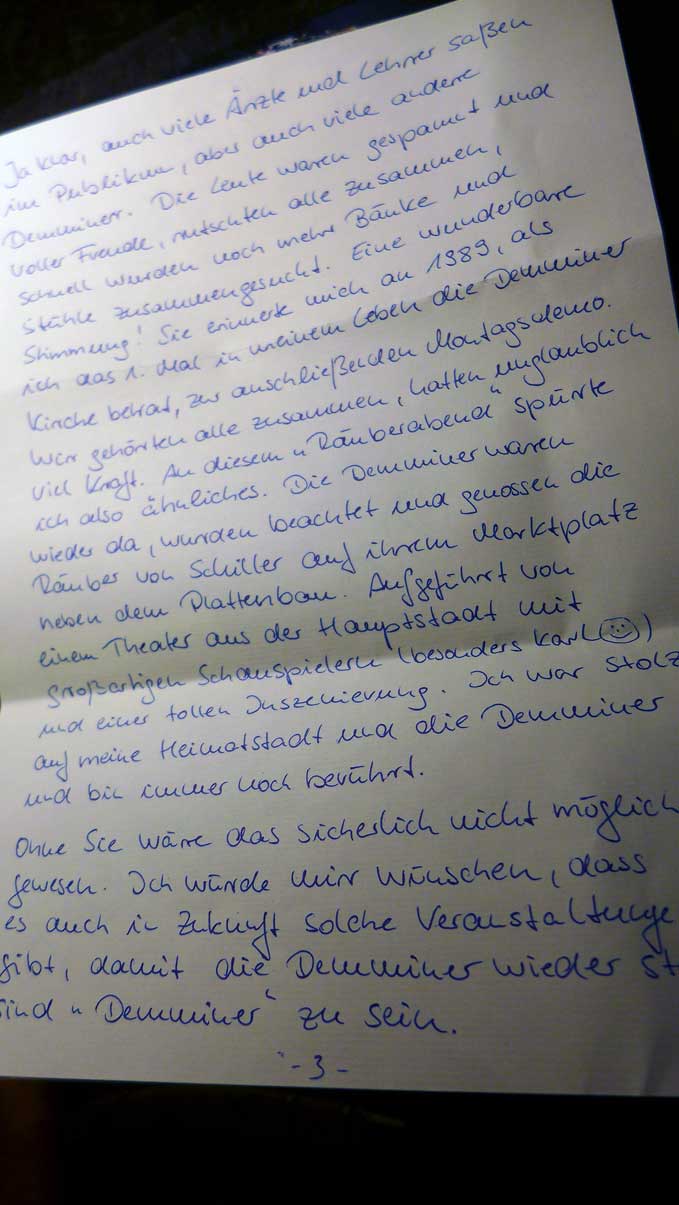 Ja klar, auch viele Ärzte und Lehrer saßen
im Publikum, aber auch viele andere
Demminer. Die Leute waren gespannt und
voller Freude, rutschten alle zusammen,
schnell wurden noch mehr Bänke und
Stühle zusammengesucht. Eine wunderbare
Stimmung! Sie erinnerte mich an 1989, als
ich das 1. Mal in meinem Leben die Demminer
Kirche betrat, zur anschließenden Montagsdemo.
Wir gehörten alle zusammen, hatten unglaublich
viel Kraft. An diesem „Räuberabend“ spürte
ich also ähnliches. Die Demminer waren
wieder da, wurden beachtet und genossen die
Räuber von Schiller auf ihrem Marktplatz
neben dem Plattenbau. Aufgeführt von
einem Theater aus der Hauptstadt mit
großartigen Schauspielern (besonders Karl ☺)
und einer tollen Inszenierung. Ich war stolz
auf meine Heimatstadt und die Demminer
und bin immer noch berührt.
Ohne Sie wäre das sicherlich nicht möglich
gewesen. Ich würde mir wünschen, dass
es auch in Zukunft solche Veranstaltunge
gibt, damit die Demminer wieder st
sind „Demminer“ zu sein.
- 3 -